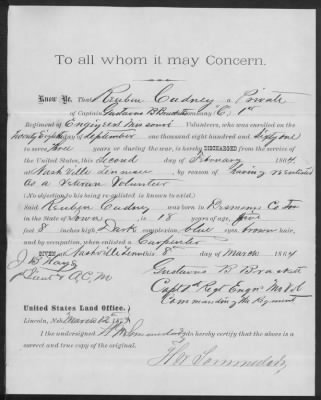 To all whom it may Concern.
Know Ye, That Reuben Cudney a Private
of Captain Gustavus B Brackett Company (C) 1st
Regiment of Engineers Missouri Volunteers, who was enrolled on the
Twenty Eight day of September one thousand eight hundred and Sixty one
to serve Three years or during the war, is hereby DISCHARGED from the service of
the United States, this Second day of February 1864
at Nashville Tennessee by reason of having reenlisted
as a Veteran Volunteer
(No objection to his being re-enlisted is known to exist.)
Said Reuben Cudney was born in
in the State of Iowa is 18 years of age, five
feet 8 inches high Dark complexion, blue eyes, brown hair,
and by occupation, when enlisted a Carpenter
GIVEN at Nashville Tenn this 8th day of March 1864
Gustavus B Brackett
Lieut & A.C.M. Capt 1st Regt Engrs Mo Vol
Commanding the Regiment
United States Land Office,
Lincoln, Neb March
I the undersigned do hereby certify that the above is a
correct and true copy of the original.